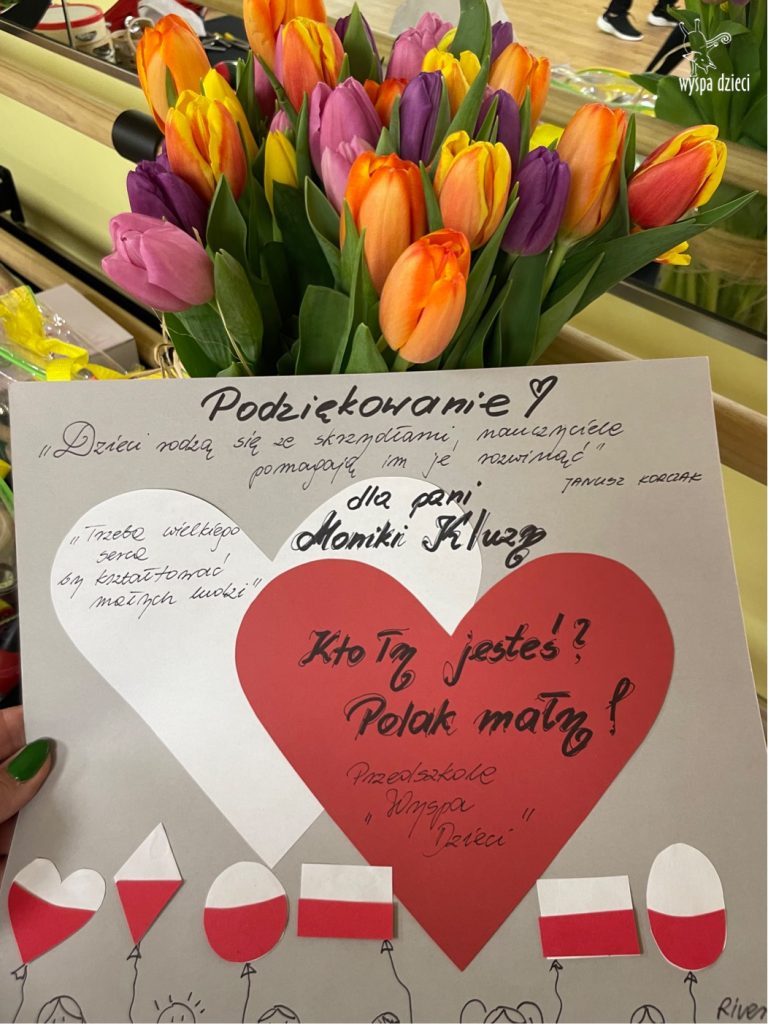 wyspa dzieci
Podziękowanie
„Dzieci rodzą się ze skrzydłami, nauczyciele
pomagają im je rozwinąć"
JANUSZ KORCZAK
dla pani
Moniki Kluzy
„Trzeba wielkiego
serca
by kształtować
małych ludzi"
Kto Ty jesteś?
Polak mały!
Przedszkole
„Wyspa
Dzieci"